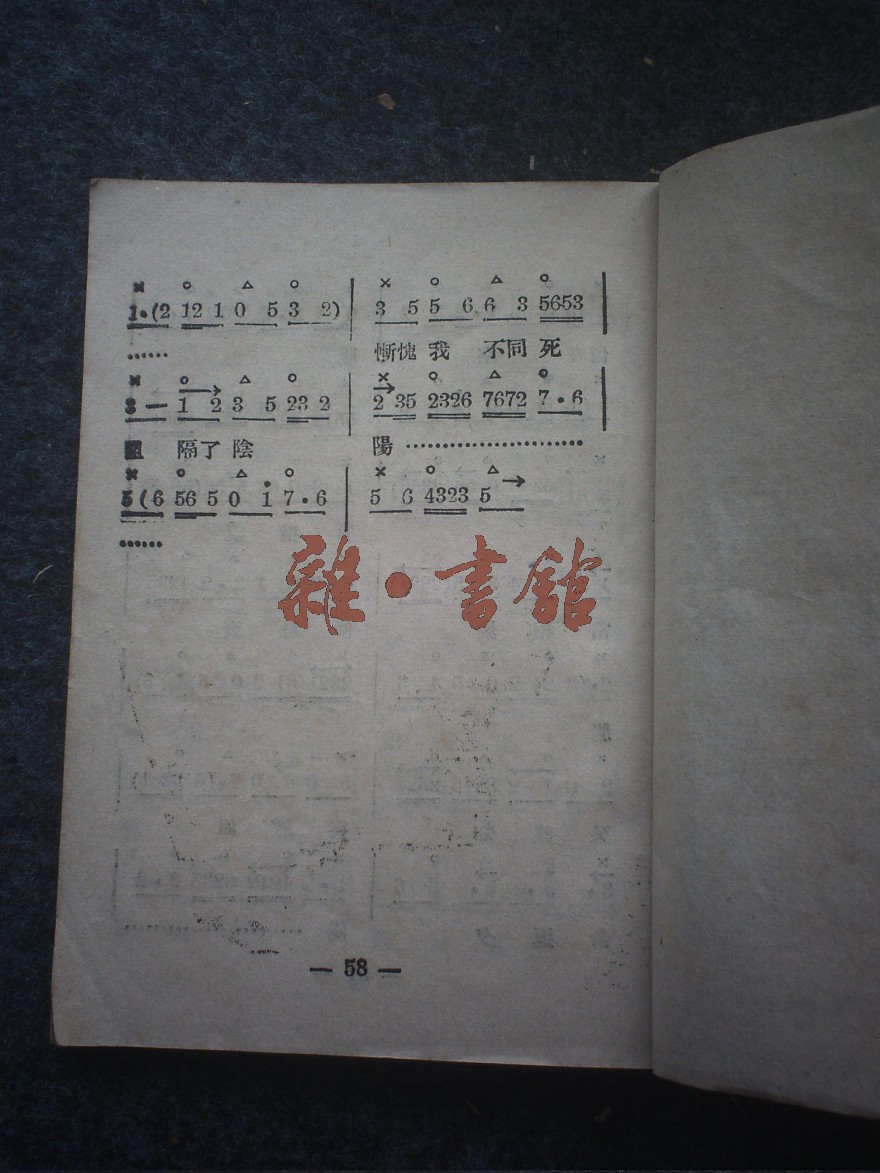 × ○ △ ○ × ○ △ ○
1·(2 12 1 0 5 3 2) | 3 5 5 6 6 3 5653 |
…… 慚愧 我 不同 死
× ○ △ ○ × ○ △ ○
3 — 1 2 3 5 23 2 | 2 35 2326 7672 7·6
阻 隔了 陰 陽……………………
× ○ △ ○ × ○ △
5(6 56 5 0 i 7·6 | 5 6 4323 5 →
……
雜·書館
— 58 —